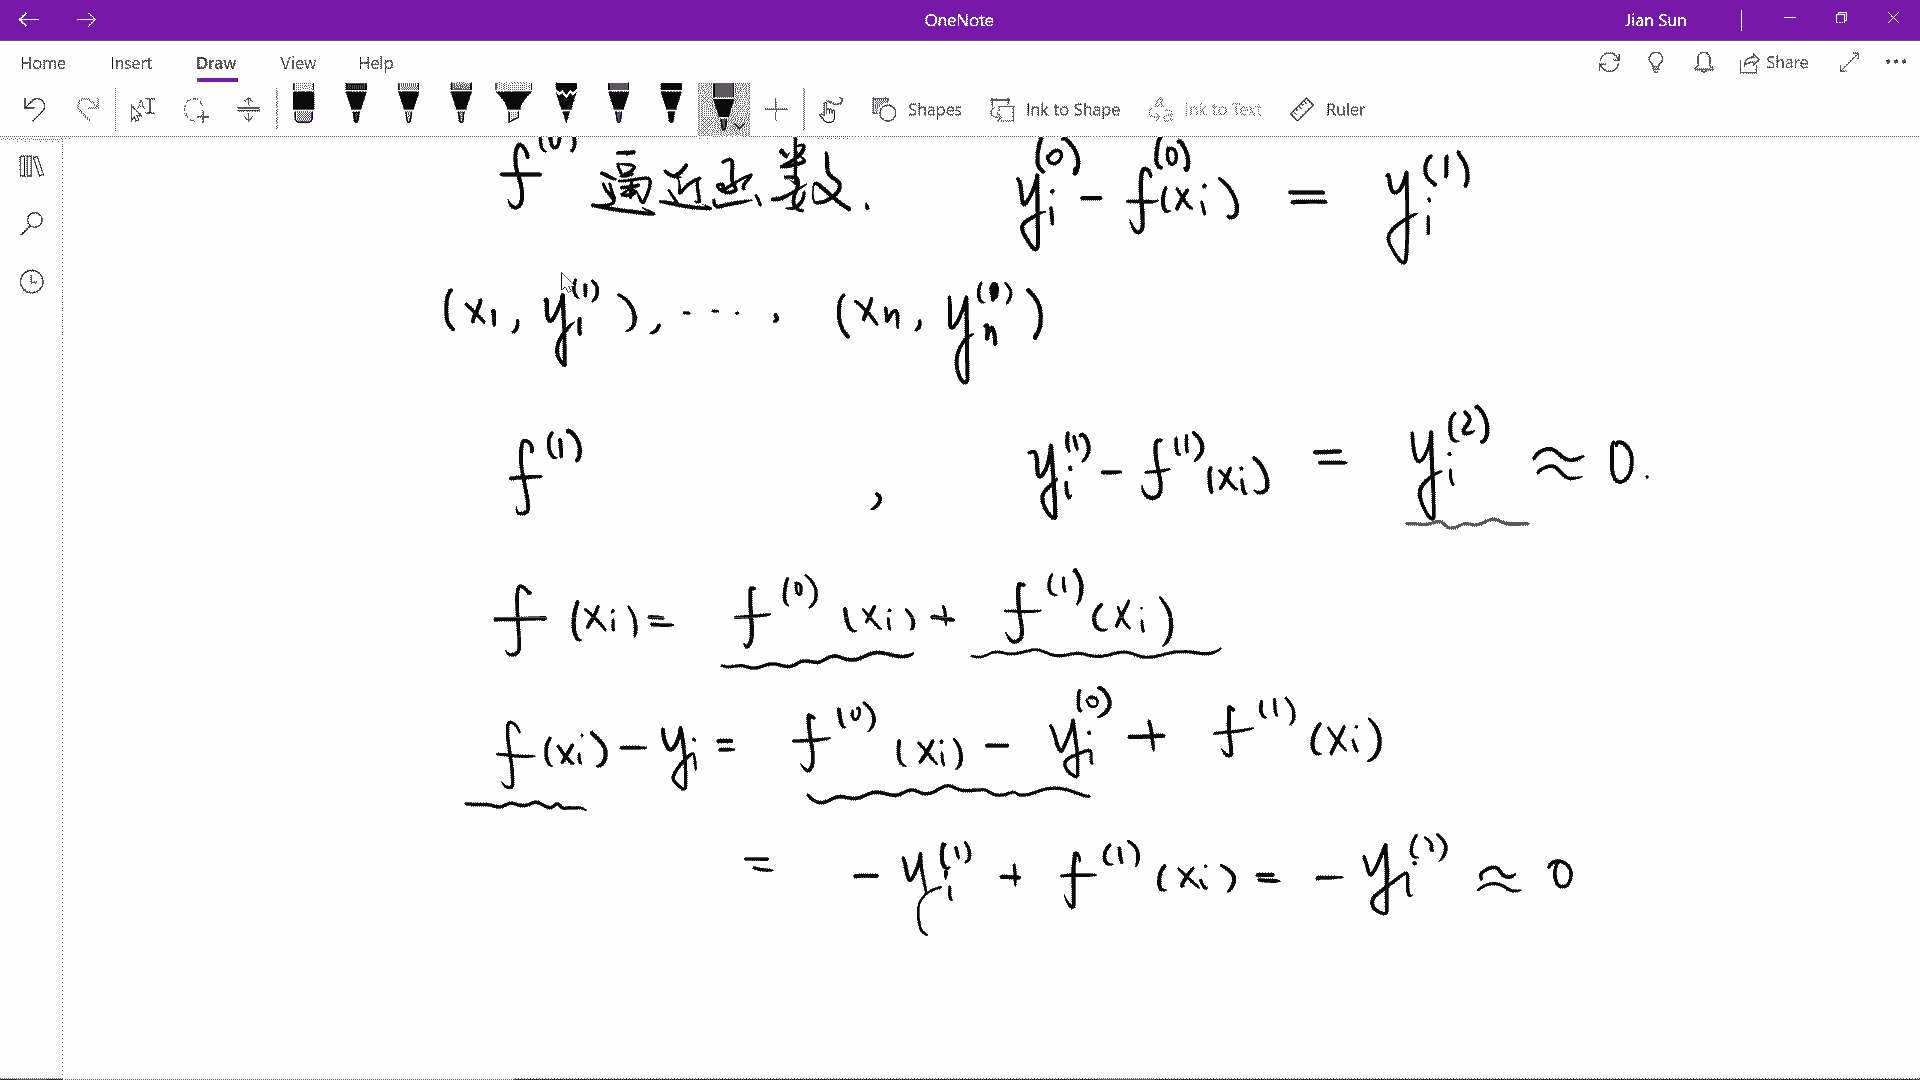 OneNote
Jian Sun
Home Insert Draw View Help
Share
Shapes Ink to Shape Ink to Text Ruler
f^(0) 逼近函数. y_i^(0) - f^(0)(x_i) = y_i^(1)
(x_1, y_1^(1)), ···, (x_n, y_n^(1))
f^(1) , y_i^(1) - f^(1)(x_i) = y_i^(2) ≈ 0.
f(x_i) = f^(0)(x_i) + f^(1)(x_i)
f(x_i) - y_i = f^(0)(x_i) - y_i^(0) + f^(1)(x_i)
= - y_i^(1) + f^(1)(x_i) = - y_i^(2) ≈ 0